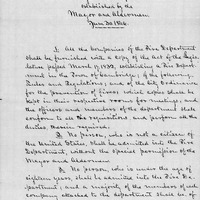 Established by the
Mayor and Aldermen
June 30, 1846.
1. All the Companies of the Fire Department
shall be furnished with a copy of the Act of the Legis-
lature passed March 17, 1832, establishing a Fire Depart-
ment in the Town of Cambridge; of the following
Rules and Regulations; and of the City Ordinance
for the prevention of fires; which copies shall be
kept in their respective rooms for meeting; and
the officers and members of the department shall
conform to all the requisitions, and perform all the
duties therein required.
2. No person, who is not a citizen of
the United States, shall be admitted into the Fire
Department, without the special permission of the
Mayor and Aldermen.
3. No person, who is under the age of
eighteen years, shall be admitted into the Fire De-
partment; and a majority of the members of each
company attached to the department shall be, of